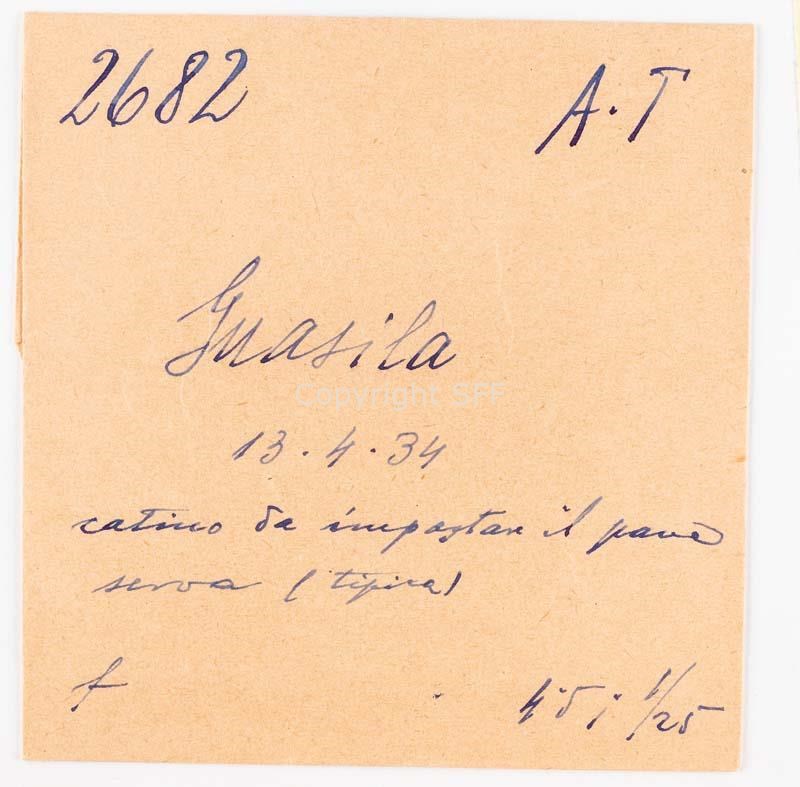 2682 A.T
Guasila
Copyright SFF
13.4.34
catino da impastare il pane
serva (tipica)
f 4.5; 1/25